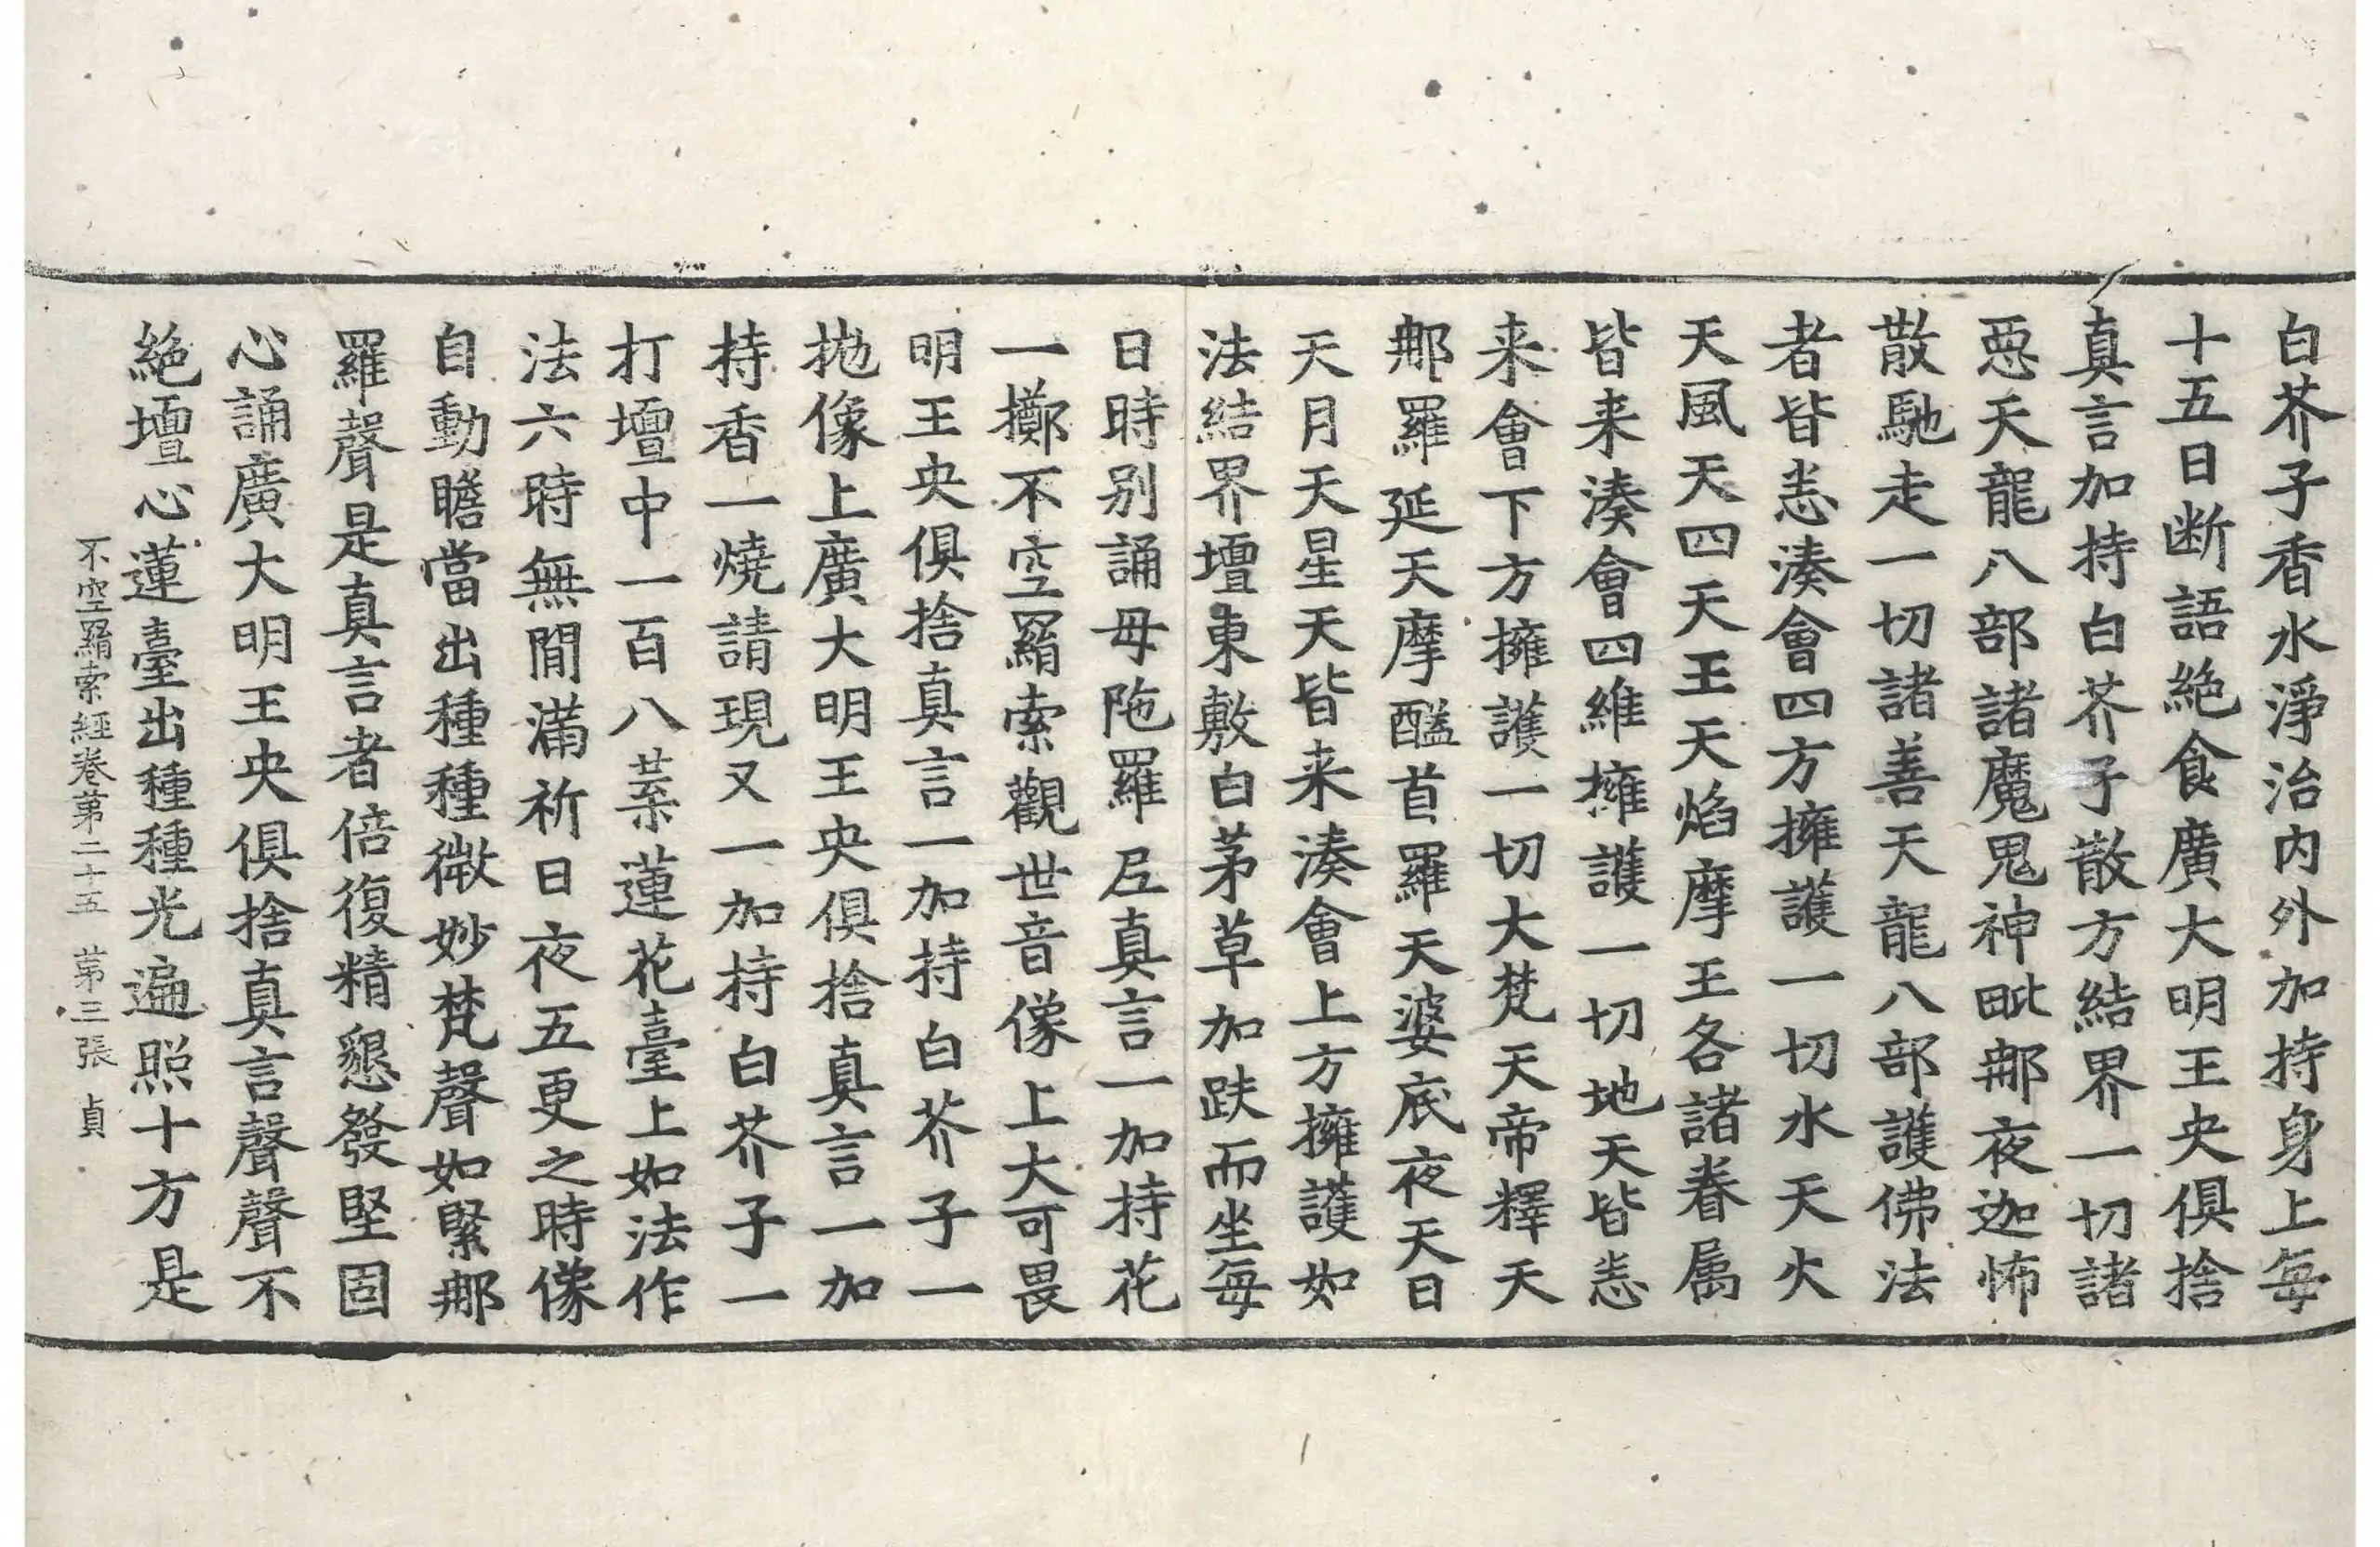 白芥子香水淨治內外加持身上每
十五日断語絶食廣大明王央俱捨
真言加持白芥子散方結界一切諸
惡天龍八部諸魔鬼神毗那夜迦怖
散馳走一切諸善天龍八部護佛法
者皆悉湊會四方擁護一切水天火
天風天四天王天焰摩王各諸眷属
皆来湊會四維擁護一切地天皆悉
来會下方擁護一切大梵天帝釋天
那羅延天摩醯首羅天婆底夜天日
天月天星天皆来湊會上方擁護如
法結界壇東敷白茅草加趺而坐每
日時別誦母陁羅尼真言一加持花
一擲不空羂索觀世音像上大可畏
明王央俱捨真言一加持白芥子一
拋像上廣大明王央俱捨真言一加
持香一燒請現又一加持白芥子一
打壇中一百八葉蓮花臺上如法作
法六時無間滿祈日夜五更之時像
自動瞻當出種種微妙梵聲如緊那
羅聲是真言者倍復精懇發堅固
心誦廣大明王央俱捨真言聲聲不
絶壇心蓮臺出種種光遍照十方是
不空羂索經卷第二十五 第三張 貞